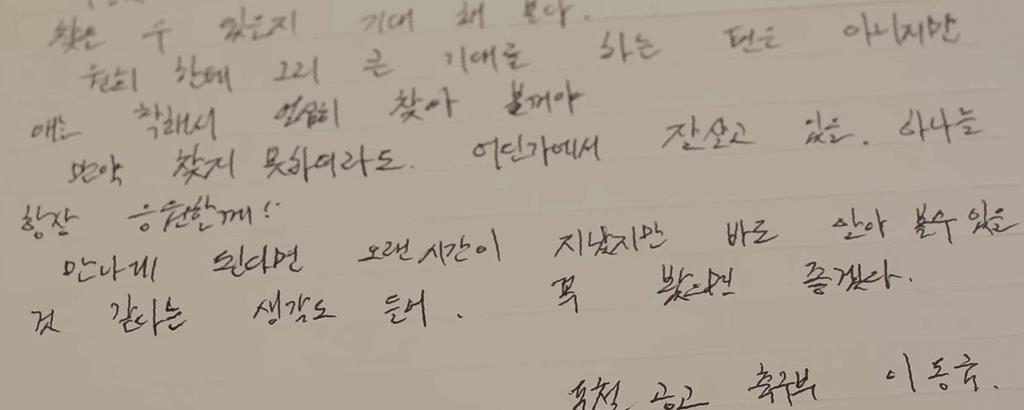 찾을 수 있을지 기대 해 본다.
한테 그리 큰 기대를 하는 편은 아니지만
애는 착해서 열심히 찾아 볼꺼야
만약 찾지 못하더라도. 어딘가에서 잘살고 있을. 하나를
항상 응원할께!
만나게 된다면 오랜시간이 지났지만 바로 알아 볼수있을
것 같다는 생각도 들어. 꼭 봤으면 좋겠다.
공고 축구부 이동욱.